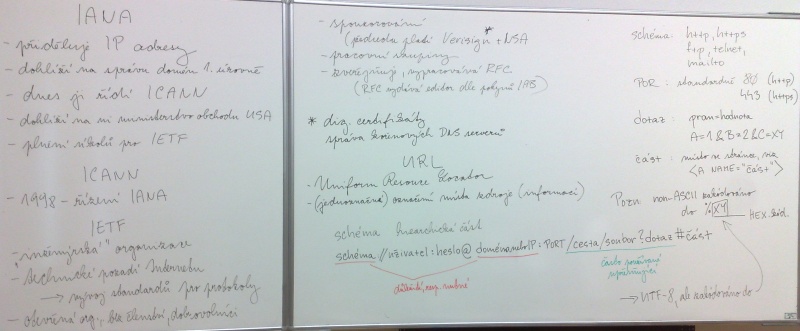 IANA
- přiděluje IP adresy
- dohlíží na správu domén 1. úrovně
- dnes ji řídí ICANN
- dohlíží na ni ministerstvo obchodu USA
- plnění úkolů pro IETF
ICANN
- 1998 - řízení IANA
IETF
- "inženýrská" organizace
- technické pozadí Internetu
→ vývoj standardů pro protokoly
- otevřená org., bez členství, dobrovolníci
- sponzorování
(předsedu platí Verisign* + NSA
- pracovní skupiny
- zveřejňují, vypracovává RFC.
(RFC vydává editor dle pokynů IAB)
* dig. certifikáty
správa kořenových DNS serverů
URL
- Uniform Resource Locator
- (jednoznačné) označení místa zdroje (informací)
schéma hierarchická část
schéma://uživatel:heslo@doménaneboIP:PORT/cesta/soubor?dotaz#část
důležité, nutné
často používané
upřesňující
schéma: http, https
ftp, telnet,
mailto
POR: standardně 80 (http)
443 (https)
dotaz: pram=hodnota
A=1&B=2&C=XY
část: místo ve stránce, viz
<A NAME="část">
Pozn. non-ASCII zakódováno
do %XY
HEX. kód.
→ UTF-8, ale zakódováno do